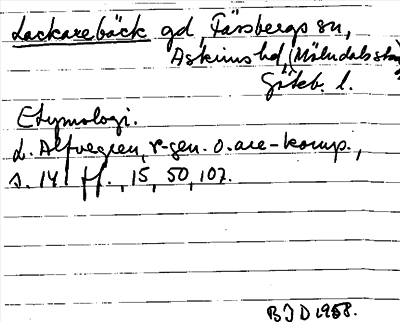 Lackarebäck gd, Fässbergs sn,
Askims hd, (Mölndals stad)
Göteb. l.
Etymologi.
L. Alfvegren, r-gen. o. are-komp.,
s. 141 ff., 15, 50, 107.
BJD 1958.